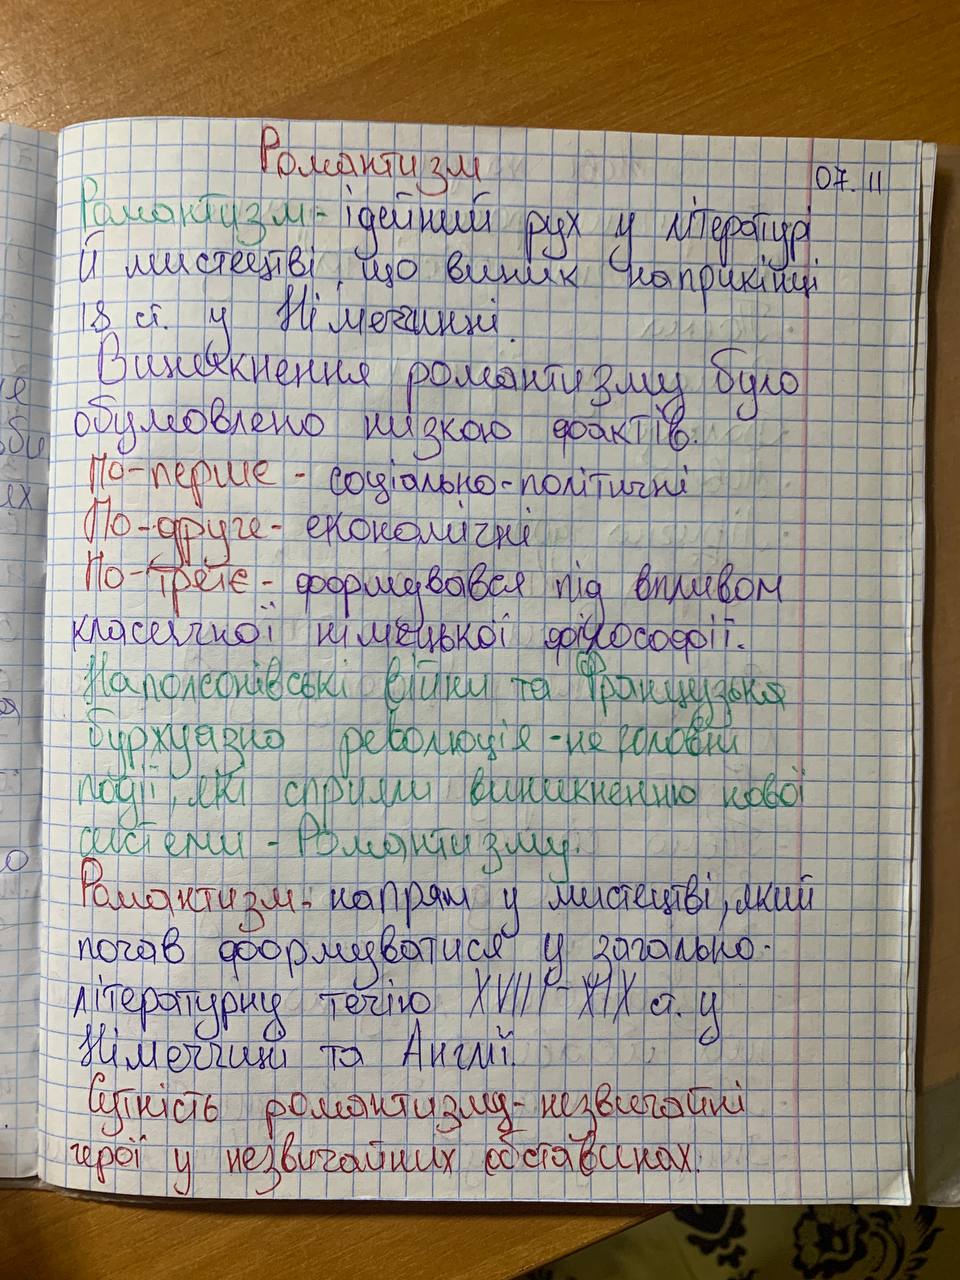 Романтизм
07.11
Романтизм - ідейний рух у літературі
й мистецтві, що виник наприкінці
18 ст. у Німеччині.
Виникнення романтизму було
обумовлено низкою фактів.
По-перше - соціально-політичні
По-друге - економічні
По-третє - формувався під впливом
класичної німецької філософії.
Наполеонівські війни та Французька
буржуазна революція - не головні
події, які сприяли виникненню нової
системи - Романтизму.
Романтизм - напрям у мистецтві, який
почав формуватися у загально-
літературну течію XVIII - XIX ст. у
Німеччині та Англії.
Сутність романтизму - незвичайні
герої у незвичайних обставинах.